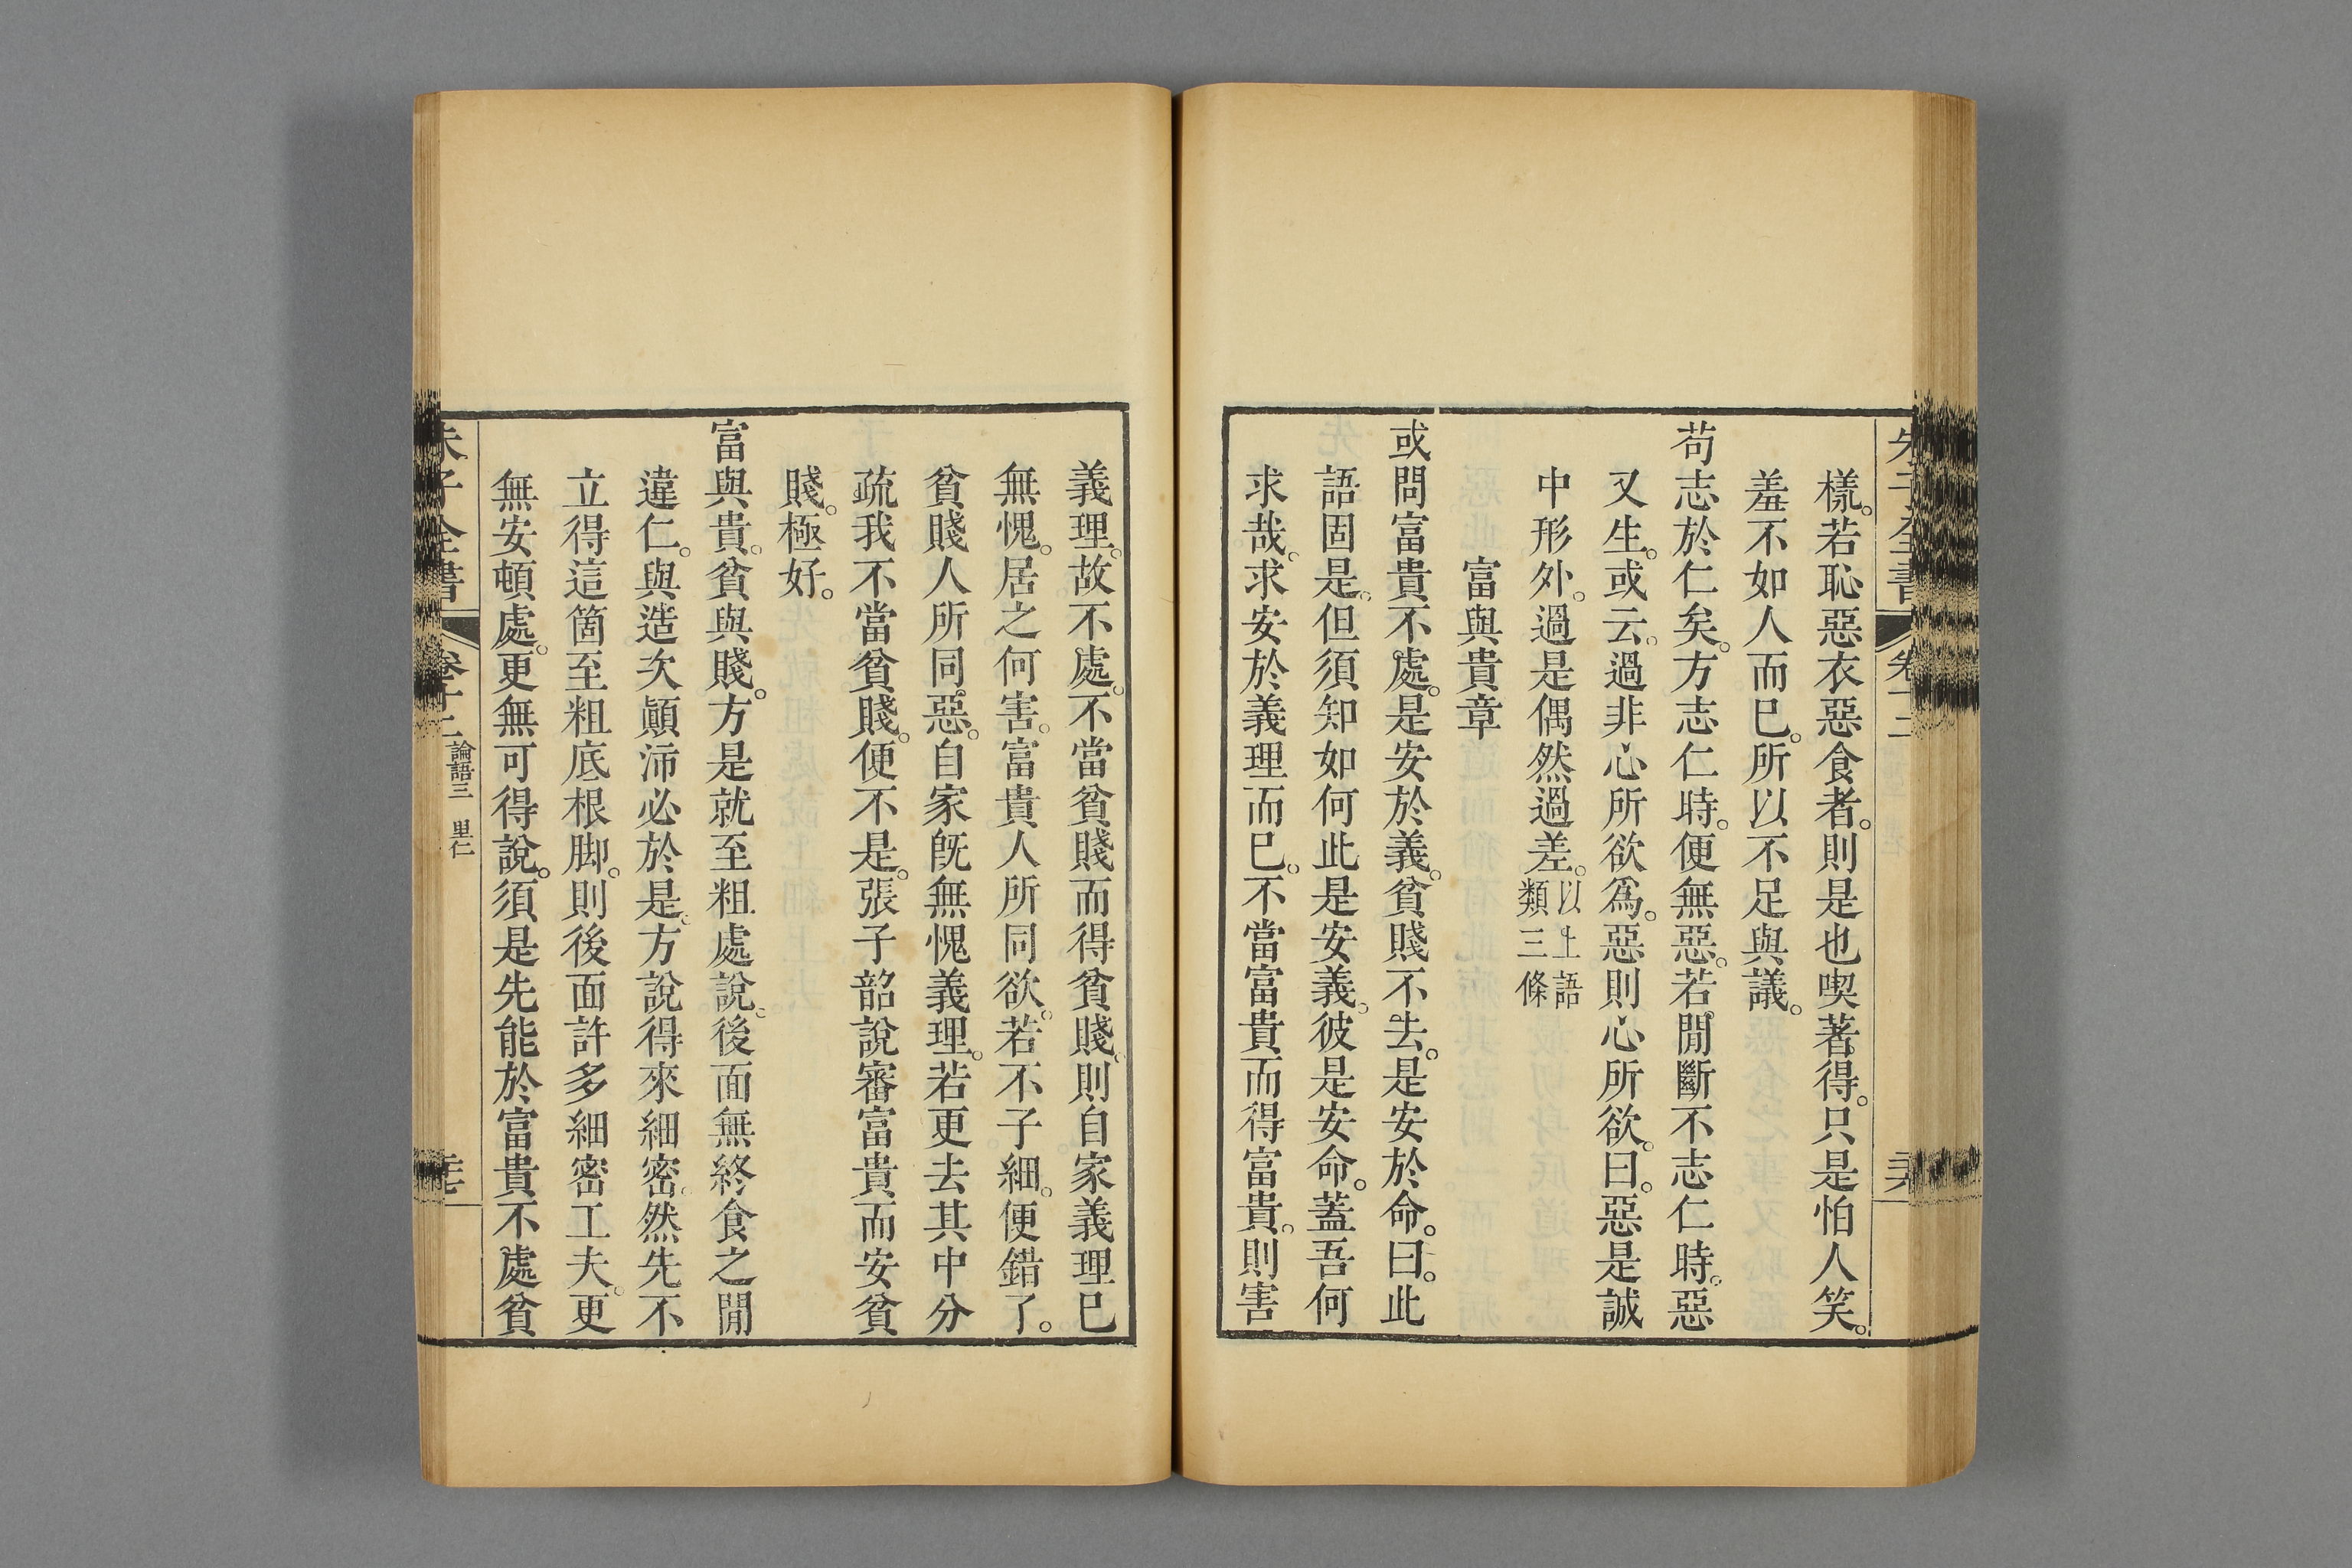 朱子全書 卷十二
樣。若恥惡衣惡食者。則是也喫著得。只是怕人笑。
羞不如人而已。所以不足與議。
苟志於仁矣。方志仁時。便無惡。若閒斷不志仁時。惡
又生。或云。過非心所欲爲。惡則心所欲。曰。惡是誠
中形外。過是偶然過差。以上語
類三條
富與貴章
或問富貴不處。是安於義。貧賤不去。是安於命。曰。此
語固是。但須知如何此是安義。彼是安命。蓋吾何
求哉。求安於義理而已。不當富貴而得富貴。則害
義理。故不處。不當貧賤而得貧賤。則自家義理已
無愧。居之何害。富貴人所同欲。若不子細。便錯了。
貧賤人所同惡。自家旣無愧義理。若更去其中分
疏我不當貧賤。便不是。張子韶說審富貴而安貧
賤。極好。
富與貴。貧與賤。方是就至粗處說。後面無終食之閒
違仁。與造次顚沛必於是。方說得來細密。然先不
立得這箇至粗底根脚。則後面許多細密工夫。更
無安頓處。更無可得說。須是先能於富貴不處貧
朱子全書 卷十二 論語三 里仁